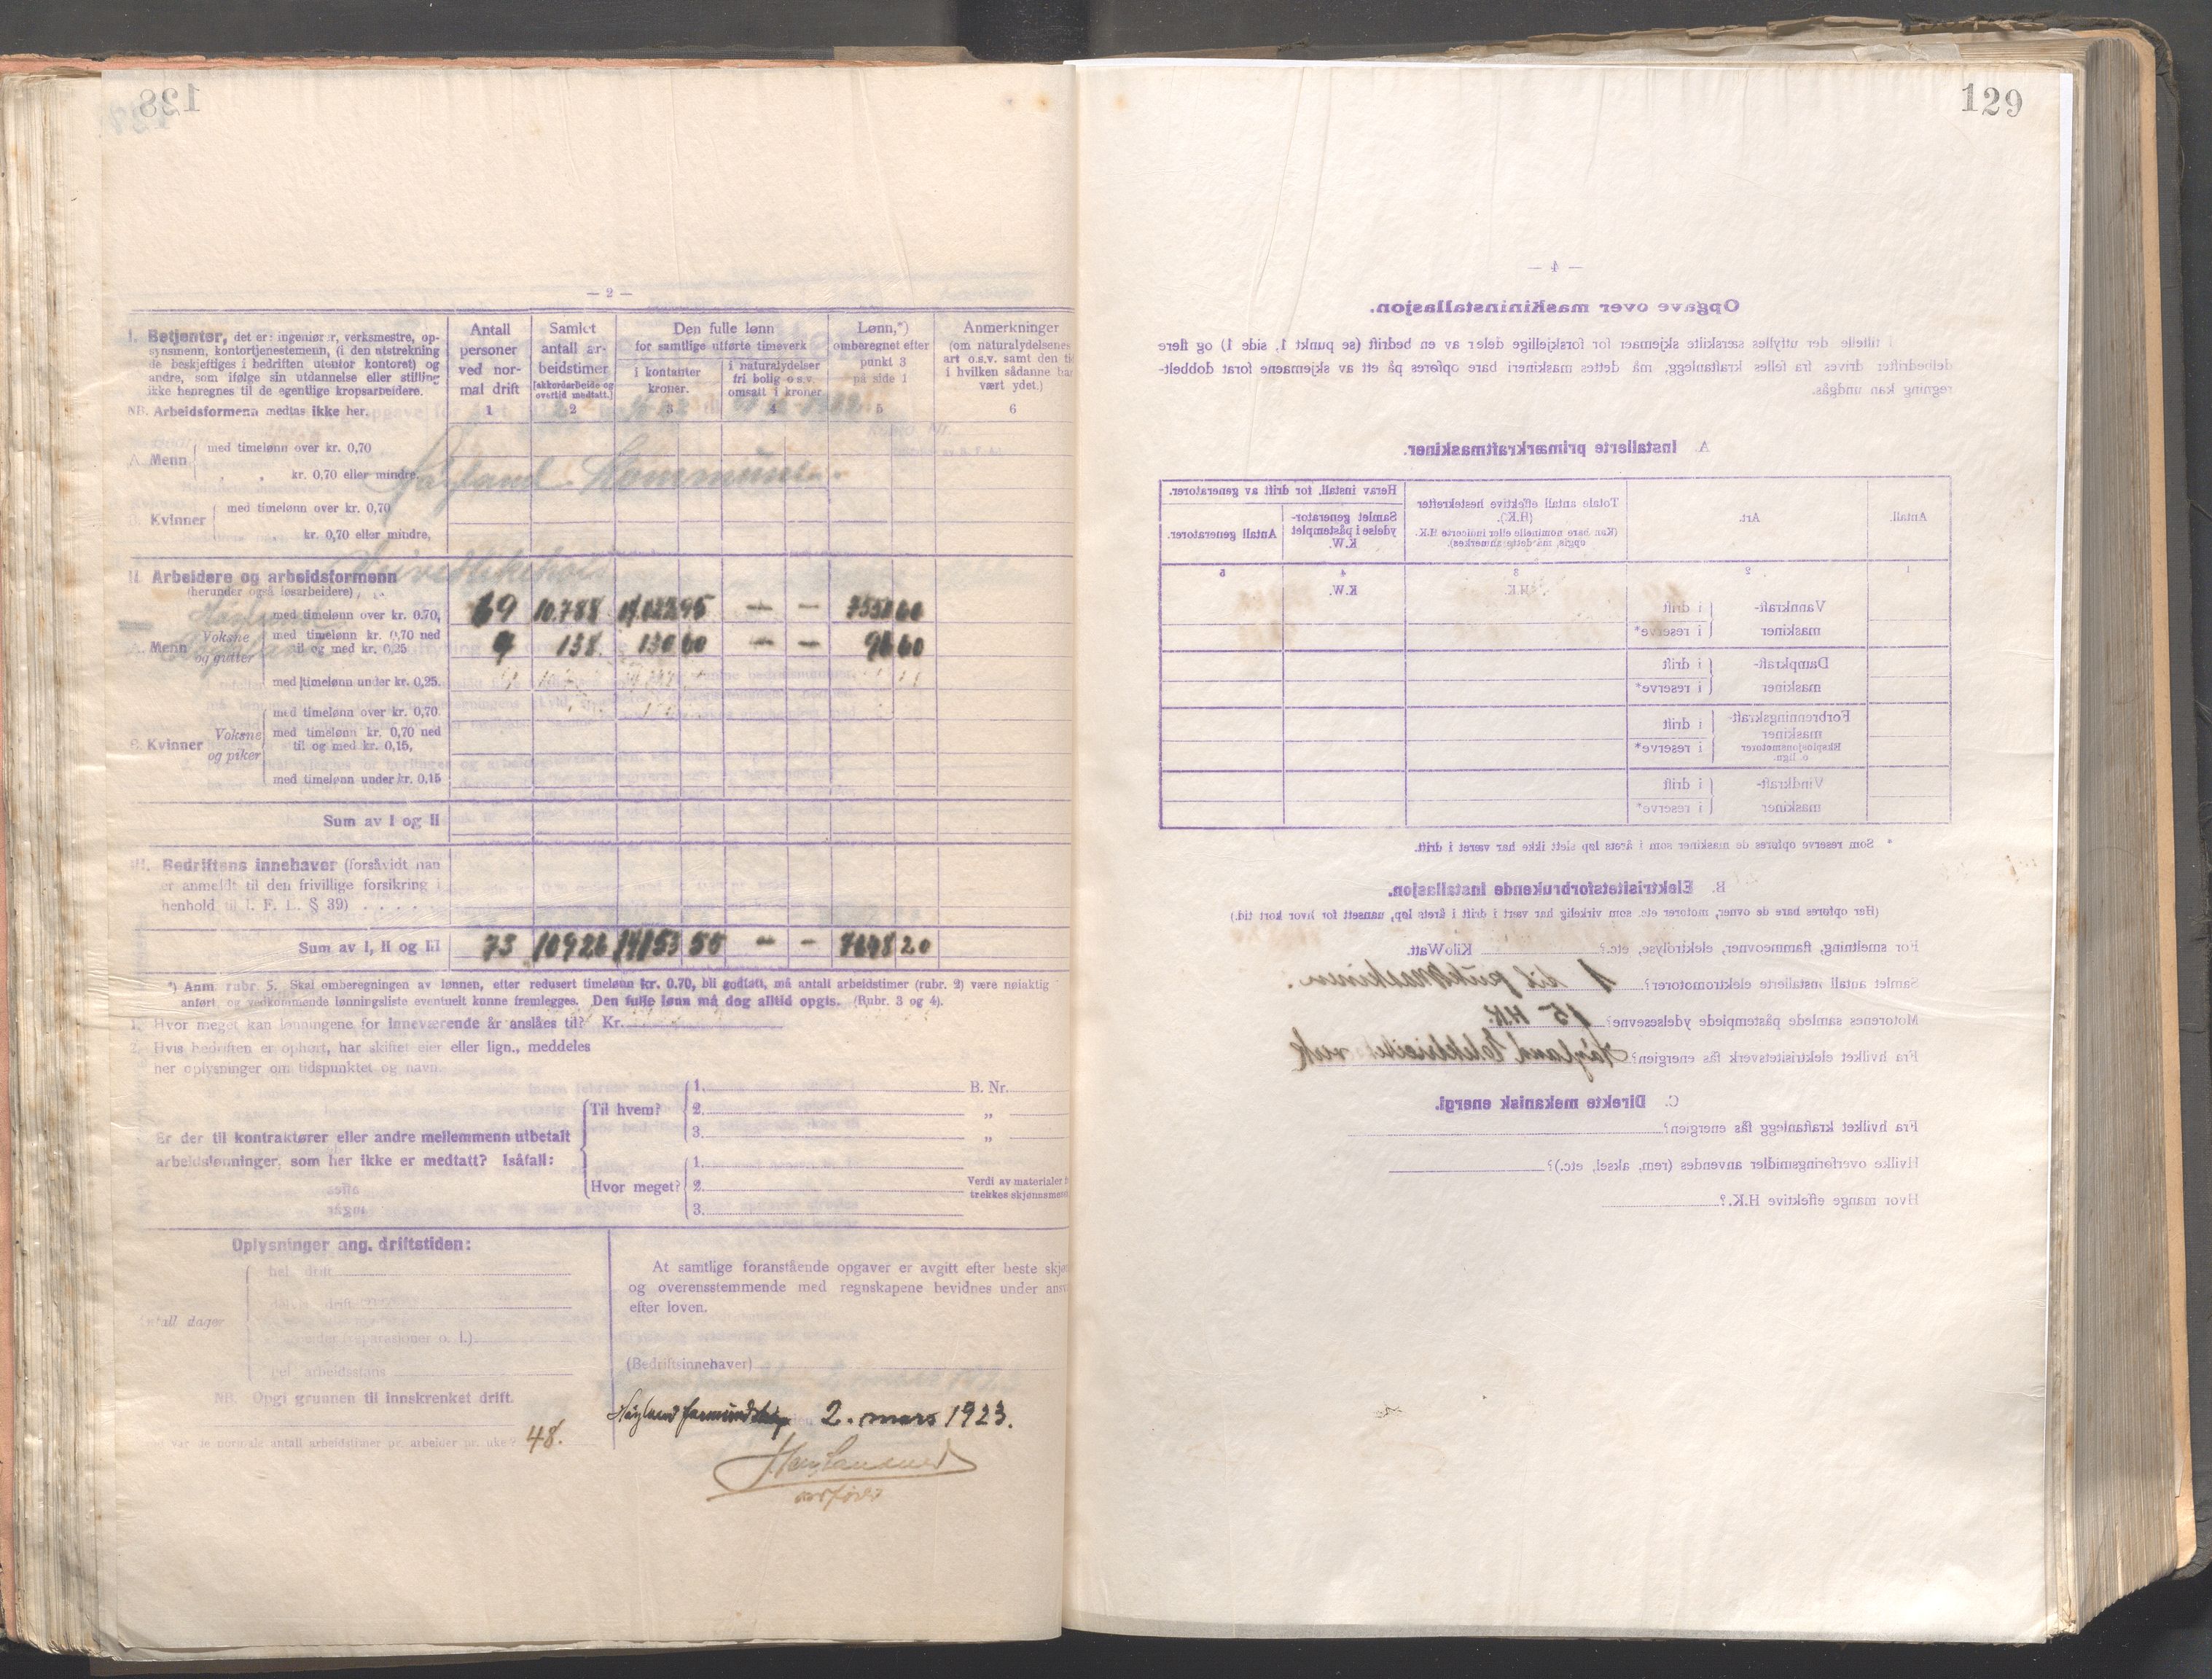 128
— 2 —
I. Betjenter, det er: ingeniører, verksmestre, op-
synsmenn, kontortjenestemenn, (i den utstrekning
de beskjeftiges i bedriften utenfor kontoret) og
andre, som ifølge sin utdannelse eller stilling
ikke henregnes til de egentlige kropsarbeidere.
NB. Arbeidsformenn medtas ikke her.
Antall
personer
ved nor-
mal drift
1
Samlet
antall ar-
beidstimer
[akkordarbeide og
overtid medtatt.]
2
Den fulle lønn
for samtlige utførte timeverk
i kontanter
kroner.
3
i naturalydelser
fri bolig o s.v.
omsatt i kroner
4
Lønn,*)
omberegnet efter
punkt 3
på side 1
5
Anmerkninger
(om naturalydelsenes
art o.s.v. samt den tid
i hvilken sådanne har
vært ydet.)
6
A. Menn
med timelønn over kr. 0,70
„ „ kr. 0,70 eller mindre.
Høyland Kommune
Kvinner
med timelønn over kr. 0,70
kr. 0,70 eller mindre,
Veivedlikehold
II Arbeidere og arbeidsformenn
(herunder også løsarbeidere)
Menn Voksne og gutter
med timelønn over kr. 0.70, 69 10.788 14.022 95 — — 7551 60
med timelønn kr. 0,70 ned
til og med kr. 0,25 4 138 130 60 — — 96 60
med timelønn under kr. 0,25.
Kvinner Voksne og piker
med timelønn over kr. 0,70.
med timelønn kr. 0,70 ned
til og med kr. 0,15,
med timelønn under kr. 0,15
Sum av I og II
III. Bedriftens innehaver (forsåvidt han
er anmeldt til den frivillige forsikring i
henhold til l. F. L. § 39) . . . . .
Sum av I, II og III 73 10926 14153 55 — — 7648 20
*) Anm rubr. 5. Skal omberegningen av lønnen, efter redusert timelønn kr. 0.70, bli godtatt, må antall arbeidstimer (rubr. 2) være nøiaktig
anført, og vedkommende lønningsliste eventuelt kunne fremlegges. Den fulle lønn må dog alltid opgis. (Rubr. 3 og 4).
1. Hvor meget kan lønningene for inneværende år anslåes til? Kr.
2. Hvis bedriften er ophørt, har skiftet eier eller lign., meddeles
her oplysninger om tidspunktet og navn.
Er der til kontraktører eller andre mellemmenn utbetalt
arbeidslønninger, som her ikke er medtatt? Isåfall:
Til hvem?
1. B. Nr.
2. „
3. „
Hvor meget?
1.
2.
3.
Verdi av materialer
trekkes skjønnsmess
Oplysninger ang. driftstiden:
Antall dager
hel drift
delvis drift
(reparasjoner o. l.)
hel arbeidsstans
NB. Opgi grunnen til innskrenket drift.
var de normale antall arbeidstimer pr. arbeider pr. uke? 48.
At samtlige foranstående opgaver er avgitt efter beste skjøn
og overensstemmende med regnskapene bevidnes under ansva
efter loven.
(Bedriftsinnehaver)
Høyland formandskap 2. mars 1923.
ordfører
129
— 4 —
Opgave over maskininstallasjon.
I tilfelle der utfylles særskilte skjemaer for forskjellige deler av en bedrift (se punkt 1, side 1) og flere
delbedrifter drives fra felles kraftanlegg, må dettes maskineri bare opføres på ett av skjemaene forat dobbelt-
regning kan undgåes.
A. Installerte primærkraftmaskiner.
Antall.
Art.
Totale antall effektive hestekrefter
(H.K.).
(Kan bare nominelle eller indicerte H.K.
opgis, må dette anmerkes).
Herav install. for drift av generatorer.
Samlet generator-
ydelse i påstemplet
K.W.
Antall generatorer.
1 2 3 4 5
H.K. K.W.
Vannkraft-
maskiner
i drift
i reserve*
Dampkraft-
maskiner
i drift
i reserve*
Forbrenningskraft-
maskiner
Eksplosjonsmotorer
o. lign.
i drift
i reserve*
Vindkraft-
maskiner
i drift
i reserve*
* Som reserve opføres de maskiner som i årets løp slett ikke har været i drift.
B. Elektrisitetsforbrukende installasjon.
(Her opføres bare de ovner, motorer etc. som virkelig har vært i drift i årets løp, uansett for hvor kort tid.)
For smeltning, flammeovner, elektrolyse, etc.? KiloWatt.
Samlet antall installerte elektromotorer? 1 til pukkmaskinen.
Motorenes samlede påstemplede ydelsesevne? 15 H.K.
Fra hvilket elektrisitetsverk fås energien? Høyland Elektricitetsverk
C. Direkte mekanisk energi.
Fra hvilket kraftanlegg fås energien?
Hvilke overføringsmidler anvendes (rem, aksel, etc.)?
Hvor mange effektive H.K.?